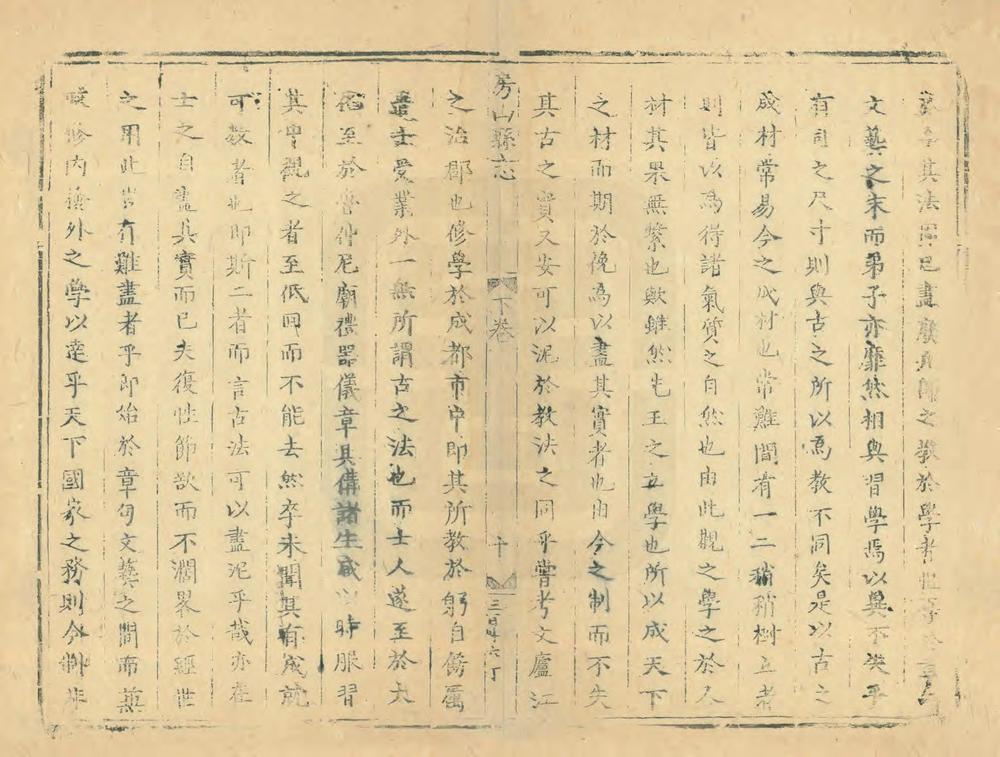 其法畫廢其師之教於學者
文藝之末而弟子亦靡然相與習學焉以冀不失乎
有司之尺寸則與古之所以為教不同矣是以古之
成材常易今之成材也常難間有一二稍稍樹立者
則皆以為得諸氣質之自然也由此觀之學之於人
材其果無繫也歟雖然先王之立學也所以成天下
之材而期於俛焉以盡其實者也由今之制而不失
其古之實又安可以泥於教法之同乎嘗考文廬江
房山縣志
下卷
十
之治郡也修學於成都市中即其所教於躬自飭厲
遣士受業外一無所謂古之法也而士人遂至於大
化至於魯仲尼廟禮器儀章具備諸生咸以時服習
其中觀之者至低回而不能去然卒未聞其有成就
可教者也即斯二者而言古法可以盡泥乎哉亦在
士之自盡其實而已夫復性節欲而不濶畧於經世
之用此豈有難盡者乎即始於章句文藝之間而冀
修內後外之學以達乎天下國家之務則今制非